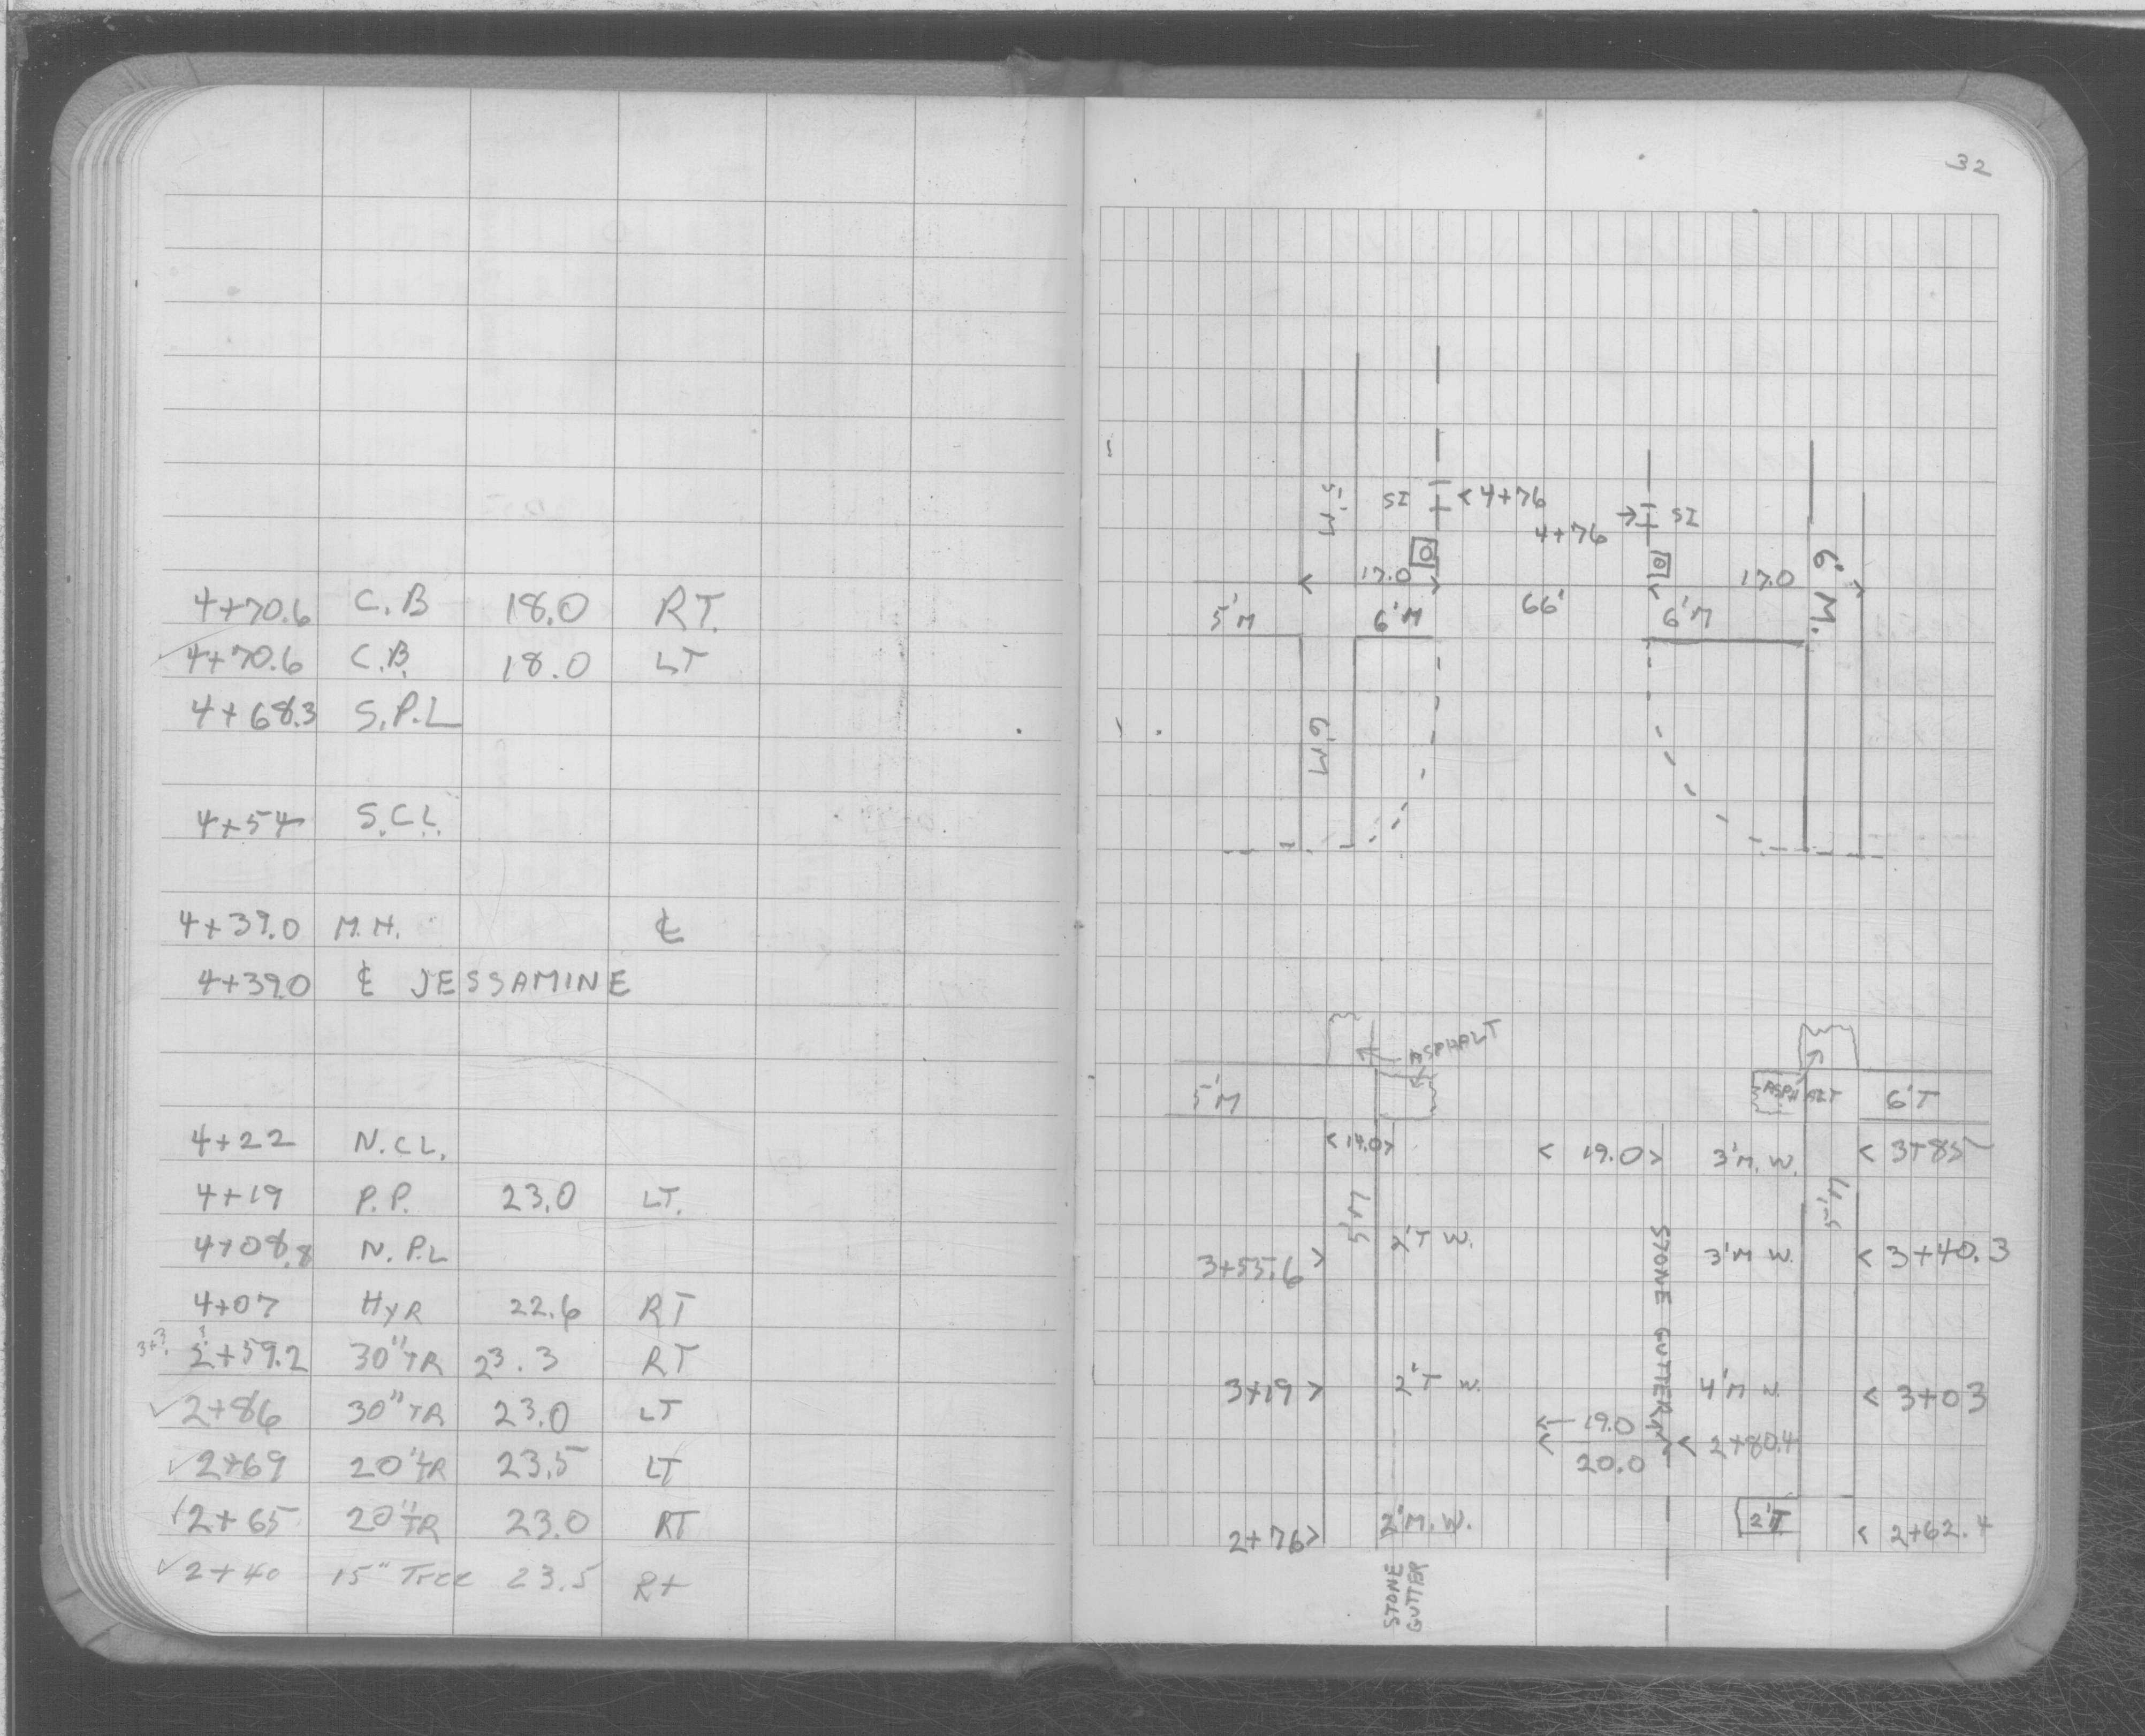 4+70.6 C.B 18.0 RT.
4+70.6 C.B. 18.0 LT
4+68.3 S.P.L
4+54 S.C.L.
4+39.0 M.H. ℄
4+39.0 ℄ JESSAMINE
4+22 N.C.L.
4+19 P.P. 23.0 LT.
4+08.8 N.P.L
4+07 HYR 22.6 RT
2+59.2 30"TR 23.3 RT
2+86 30"TR 23.0 LT
2+69 20"TR 23.5 LT
2+65 20"TR 23.0 RT
2+40 15"Tree 23.5 Rt
32
5'M SI <4+76
4+76 → SI
17.0 17.0 6'M.
5'M 6'M 66' 6'M
6'M
ASPHALT
5'M ASPHALT 6'T
<14.0> < 19.0> 3'M.W. < 3+85
5'M 5'M
3+55.6 > 2'T W. 3'M W. < 3+40.3
STONE GUTTER
3+19 > 2'T W. 4'M W. < 3+03
←19.0
20.0 < 2+80.4
2+76> 2'M.W. 2'T < 2+62.4
STONE
GUTTER